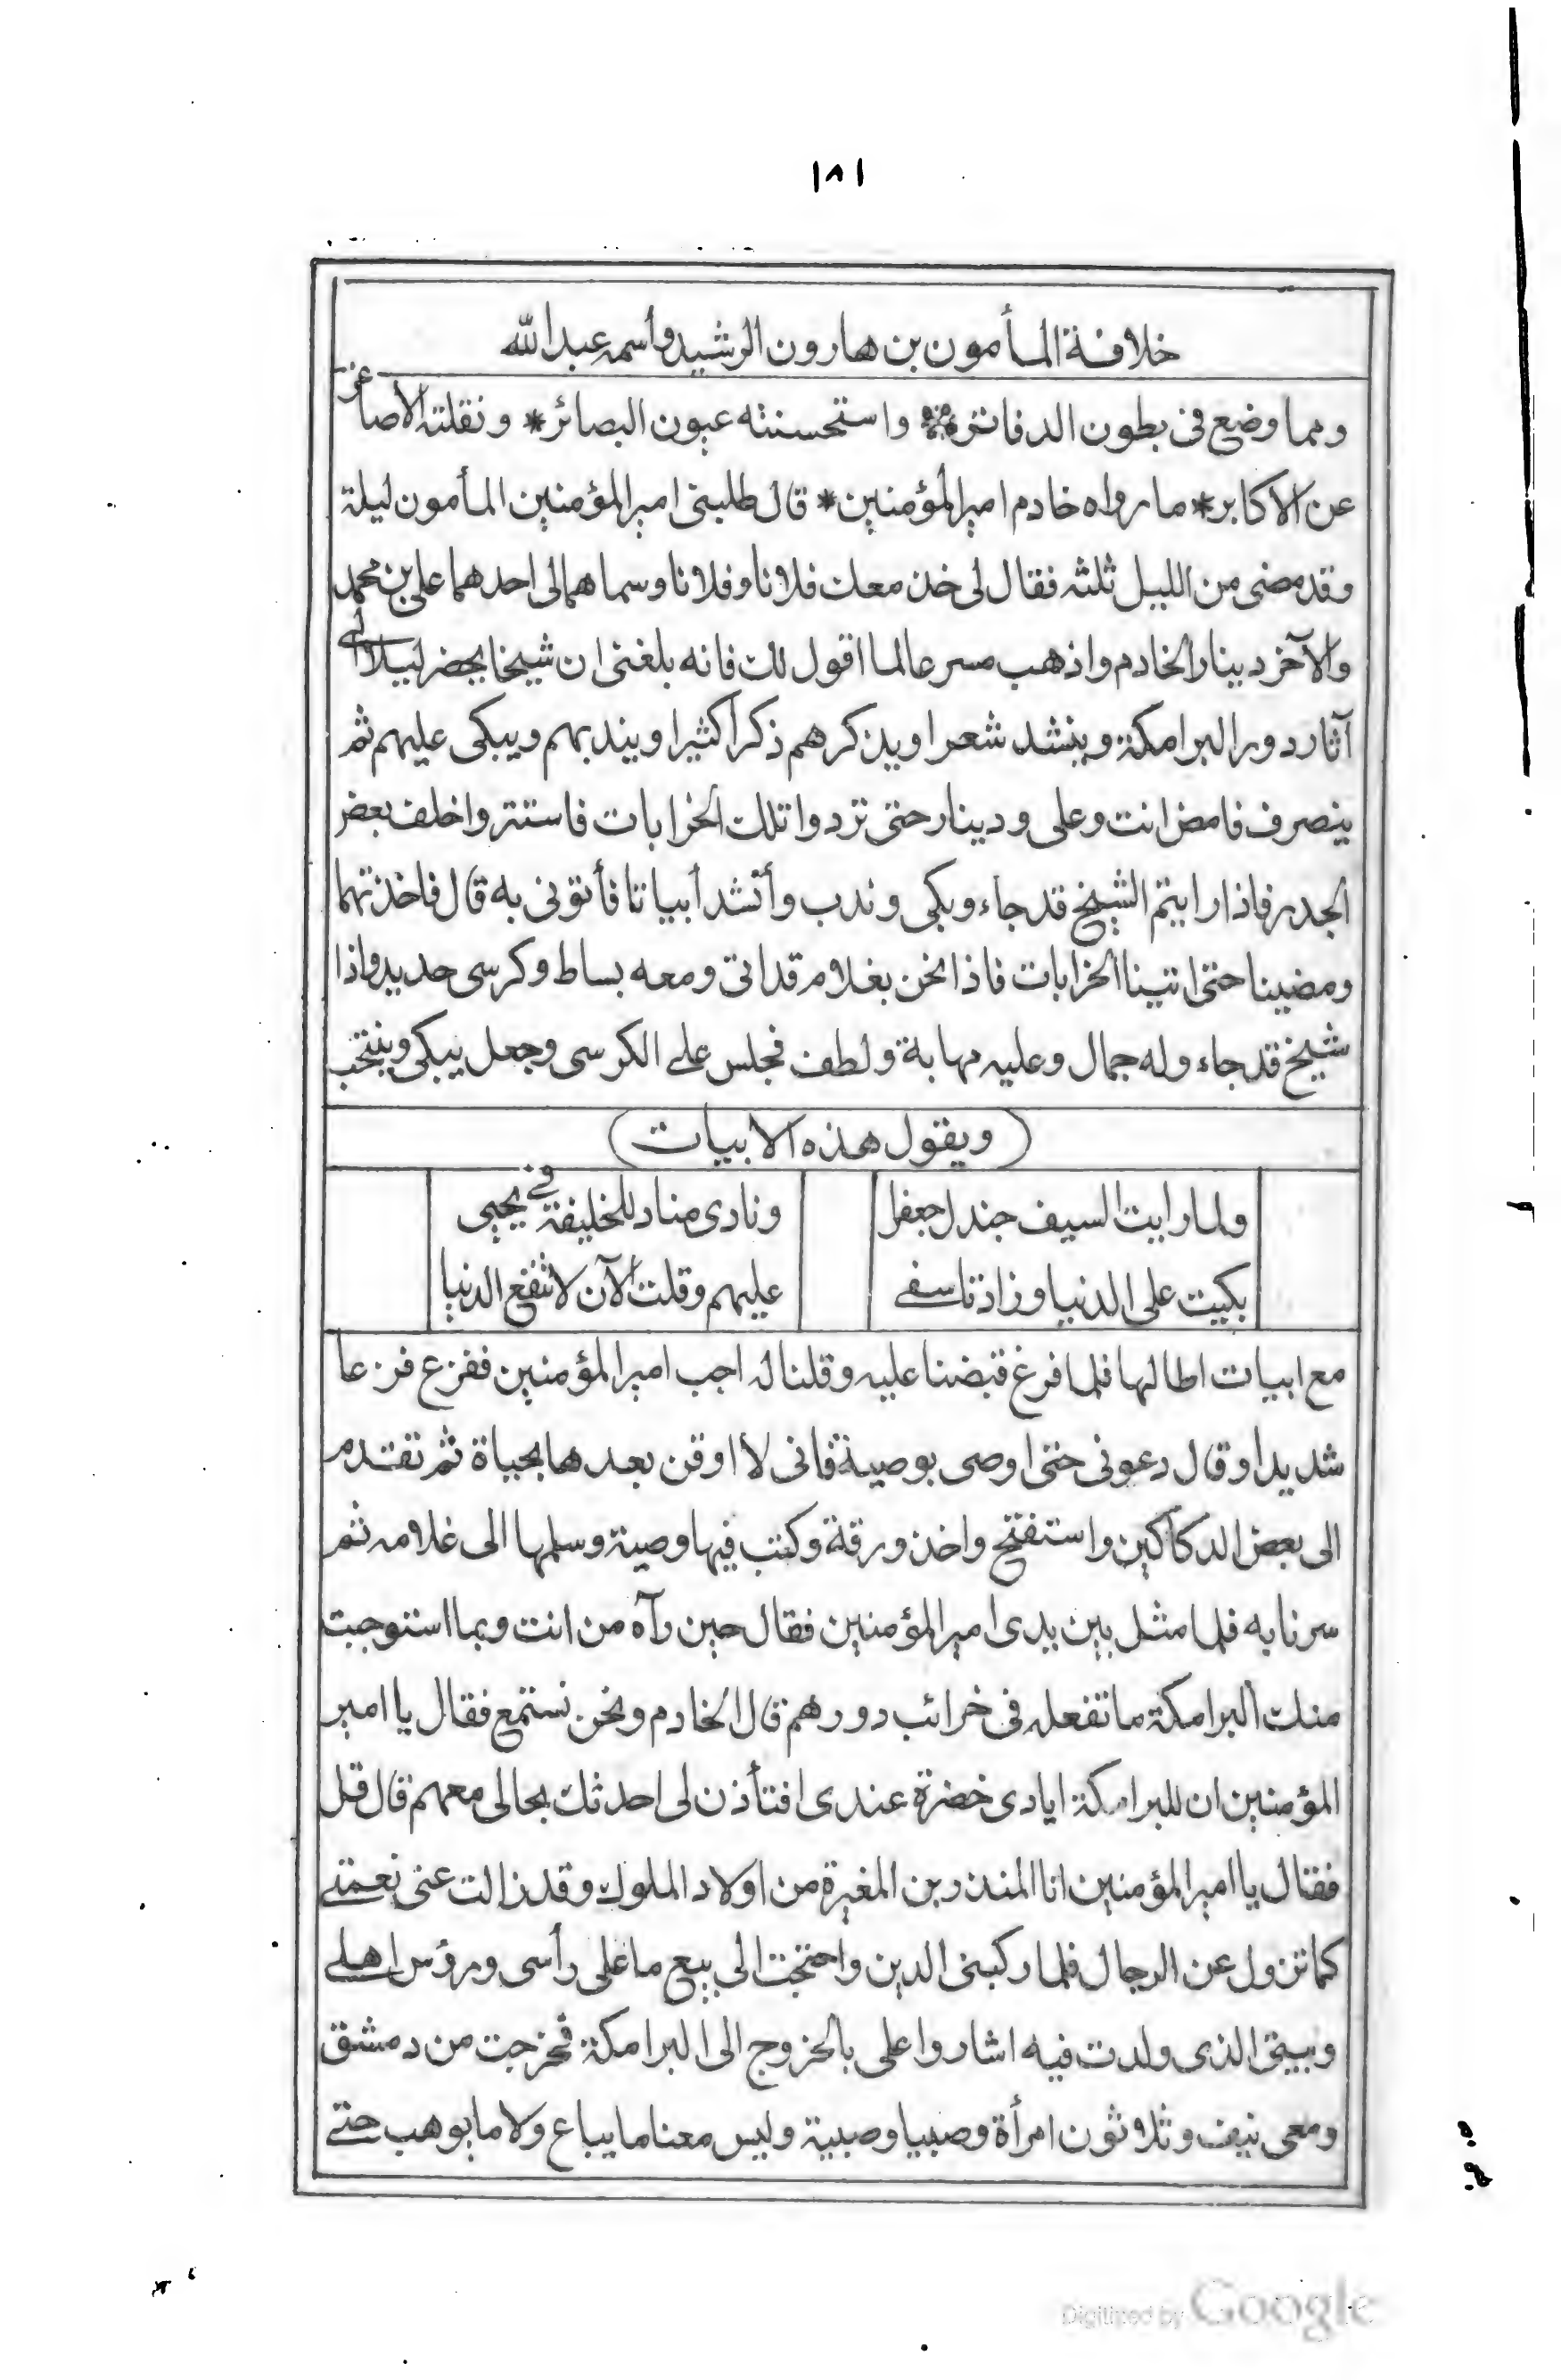 ١٨١
خلافة المأمون بن هارون الرشيد وأسمه عبد الله
ومما وضع فى بطون الدفاتر* واستحسنته عيون البصائر* ونقلته الأصاغر
عن الاكابر* ما رواه خادم امير المؤمنين* قال طلبنى امير المؤمنين المأمون ليلة
وقد مضى من الليل ثلثه فقال لى خذ معك فلانا وفلانا وسماهما لى احدهما على بن محمد
والآخر دينار الخادم واذهب مسرعا لما اقول لك فانه بلغنى ان شيخا يحضر ليلا الى
آثار دور البرامكة وينشد شعرا ويذكرهم ذكرا كثيرا ويندبهم ويبكى عليهم ثم
ينصرف فامض انت وعلى ودينار حتى تردوا تلك الخرابات فاستتروا خلف بعض
الجدر فاذا رايتم الشيخ قد جاء وبكى وندب وأنشد أبياتا فأتونى به قال فاخذتهما
ومضينا حتى اتينا الخرابات فاذا نحن بغلام قد اتى ومعه بساط وكرسى حديد واذا
شيخ قد جاء وله جمال وعليه مهابة ولطف فجلس على الكرسى وجعل يبكى وينتحب
(ويقول هذه الابيات)
ولما رايت السيف جندل جعفرا ونادى مناد للخليفة فى يحيى
بكيت على الدنيا وزاد تاسفى عليهم وقلت الآن لا تنفع الدنيا
مع ابيات اطالها فلما فرغ قبضنا عليه وقلنا له اجب امير المؤمنين ففزع فزعا
شديدا وقال دعونى حتى اوصى بوصية فانى لا اوقن بعدها بحياة ثم تقدم
الى بعض الدكاكين واستفتح واخذ ورقة وكتب فيها وصية وسلمها الى غلامه ثم
سرنا به فلما مثل بين يدى امير المؤمنين فقال حين رآه من انت وبما استوجبت
منك البرامكة ما تفعله فى خرائب دورهم قال الخادم ونحن نستمع فقال يا امير
المؤمنين ان للبرامكة ايادى خضرة عندى افتأذن لى احدثك بحالى معهم قال قل
فقال يا امير المؤمنين انا المنذر بن المغيرة من اولاد الملوك وقد زالت عنى نعمتى
كما تزول عن الرجال فلما ركبنى الدين واحتجت الى بيع ما على رأسى ورؤس اهلى
وبيتى الذى ولدت فيه اشاروا على بالخروج الى البرامكة فخرجت من دمشق
ومعى نيف وثلاثون امرأة وصبيا وصبية وليس معنا ما يباع ولا ما يوهب حتى
Digitized by Google